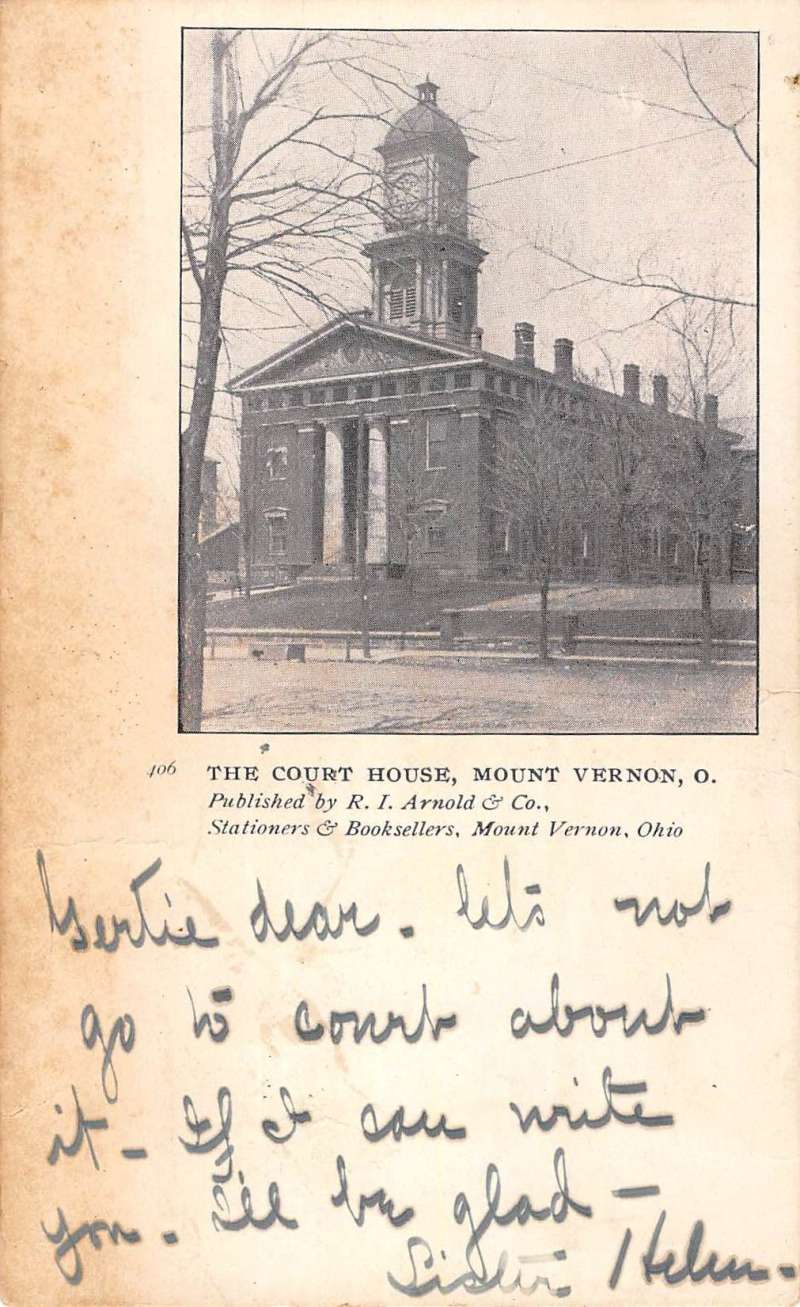 406 THE COURT HOUSE, MOUNT VERNON, O.
Published by R. I. Arnold & Co.,
Stationers & Booksellers, Mount Vernon, Ohio
Gertie dear. lets not
go to court about
it - If I can write
you. I'll be glad -
Sister Helen -